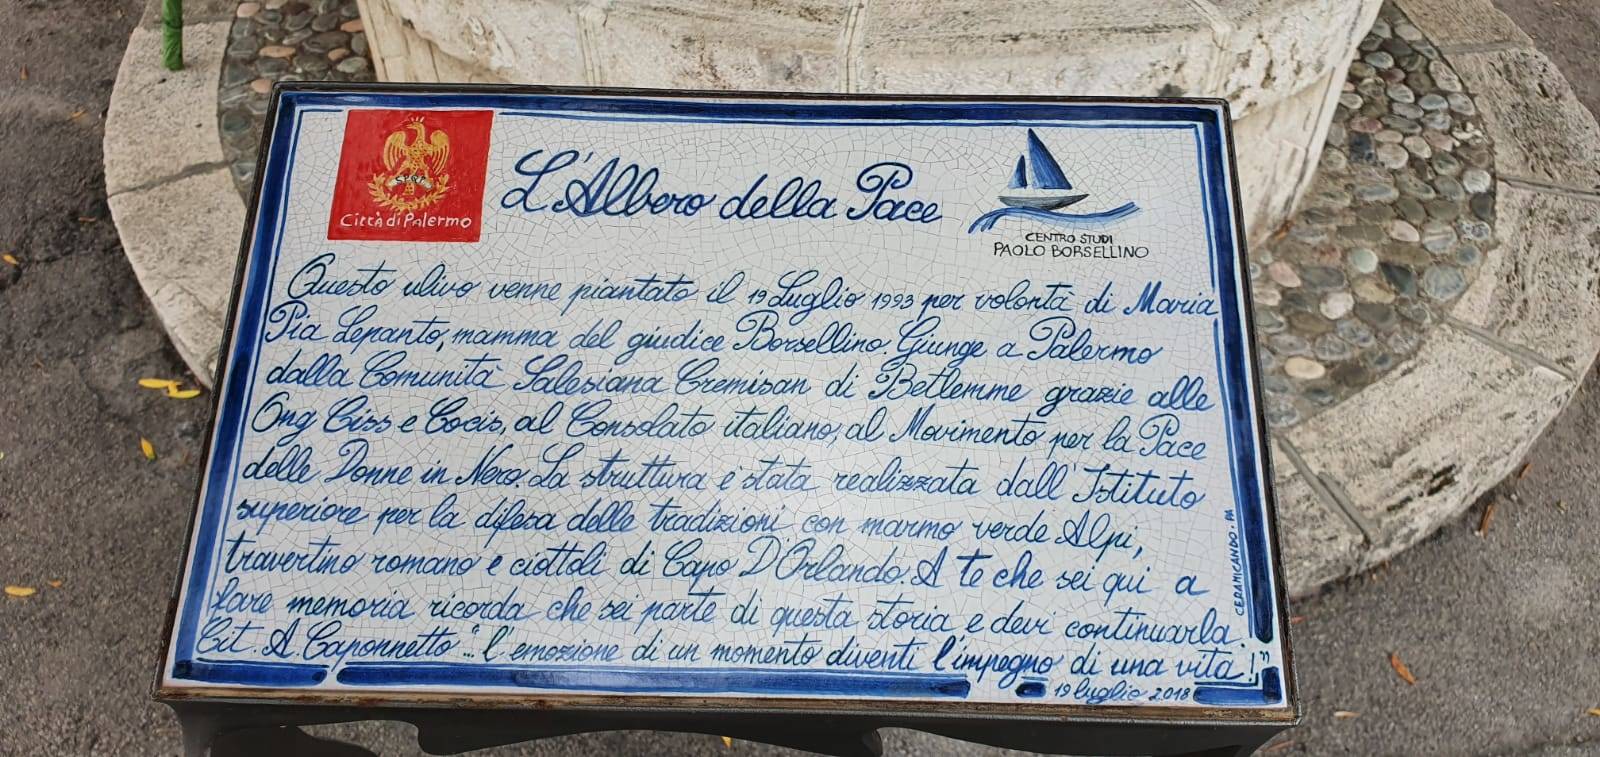 S.P.Q.P.
Città di Palermo
L'Albero della Pace
CENTRO STUDI
PAOLO BORSELLINO
Questo ulivo venne piantato il 19 Luglio 1993 per volontà di Maria
Pia Lepanto, mamma del giudice Borsellino. Giunge a Palermo
dalla Comunità Salesiana Cremisan di Betlemme grazie alle
Ong Ciss e Cocis, al Consolato italiano, al Movimento per la Pace
delle Donne in Nero. La struttura e' stata realizzata dall'Istituto
superiore per la difesa delle tradizioni con marmo verde Alpi,
travertino romano e ciottoli di Capo D'Orlando. A te che sei qui a
fare memoria ricorda che sei parte di questa storia e devi continuarla.
Cit. A. Caponnetto "... l'emozione di un momento diventi l'impegno di una vita!"
19 luglio 2018
CERAMICANDO. PA